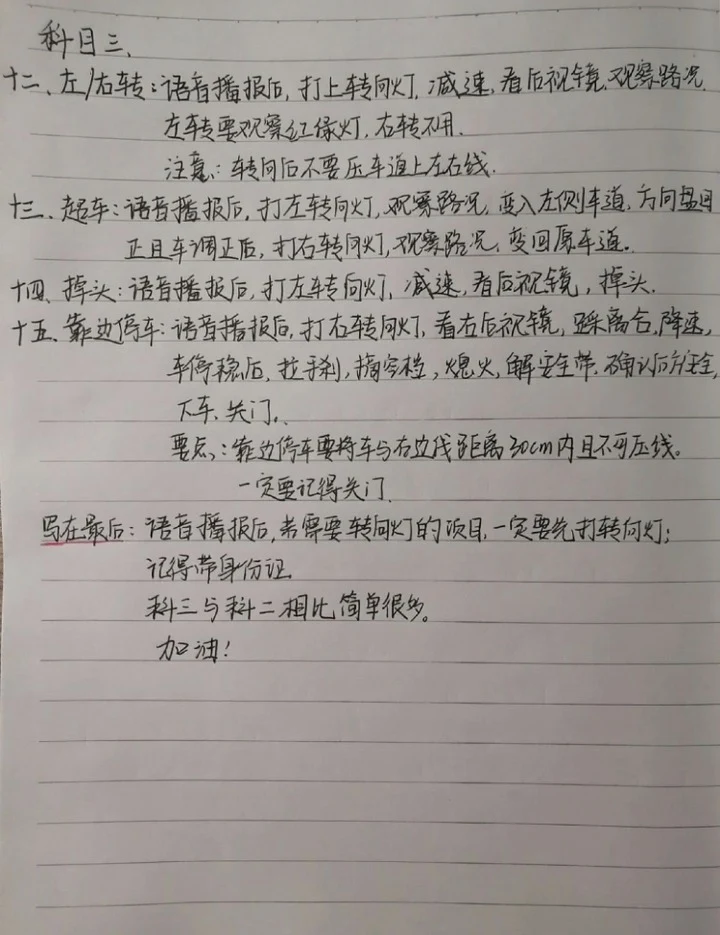 科目三、
十二、左/右转：语音播报后，打上转向灯，减速，看后视镜，观察路况，
左转要观察红绿灯，右转不用.
注意：转向后不要压车道上左右线.
十三、超车：语音播报后，打左转向灯，观察路况，变入左侧车道，方向盘回
正且车调正后，打右转向灯，观察路况，变回原车道。
十四、掉头：语音播报后，打左转向灯，减速，看后视镜，掉头.
十五、靠边停车：语音播报后，打右转向灯，看右后视镜，踩离合，降速，
车停稳后，拉手刹，摘空档，熄火，解安全带，确认后方安全，
下车、关门。
要点：靠边停车要将车与右边线距离30cm内且不可压线。
一定要记得关门.
写在最后：语音播报后，若需要转向灯的项目，一定要先打转向灯；
记得带身份证
科三与科二相比简单很多。
加油！